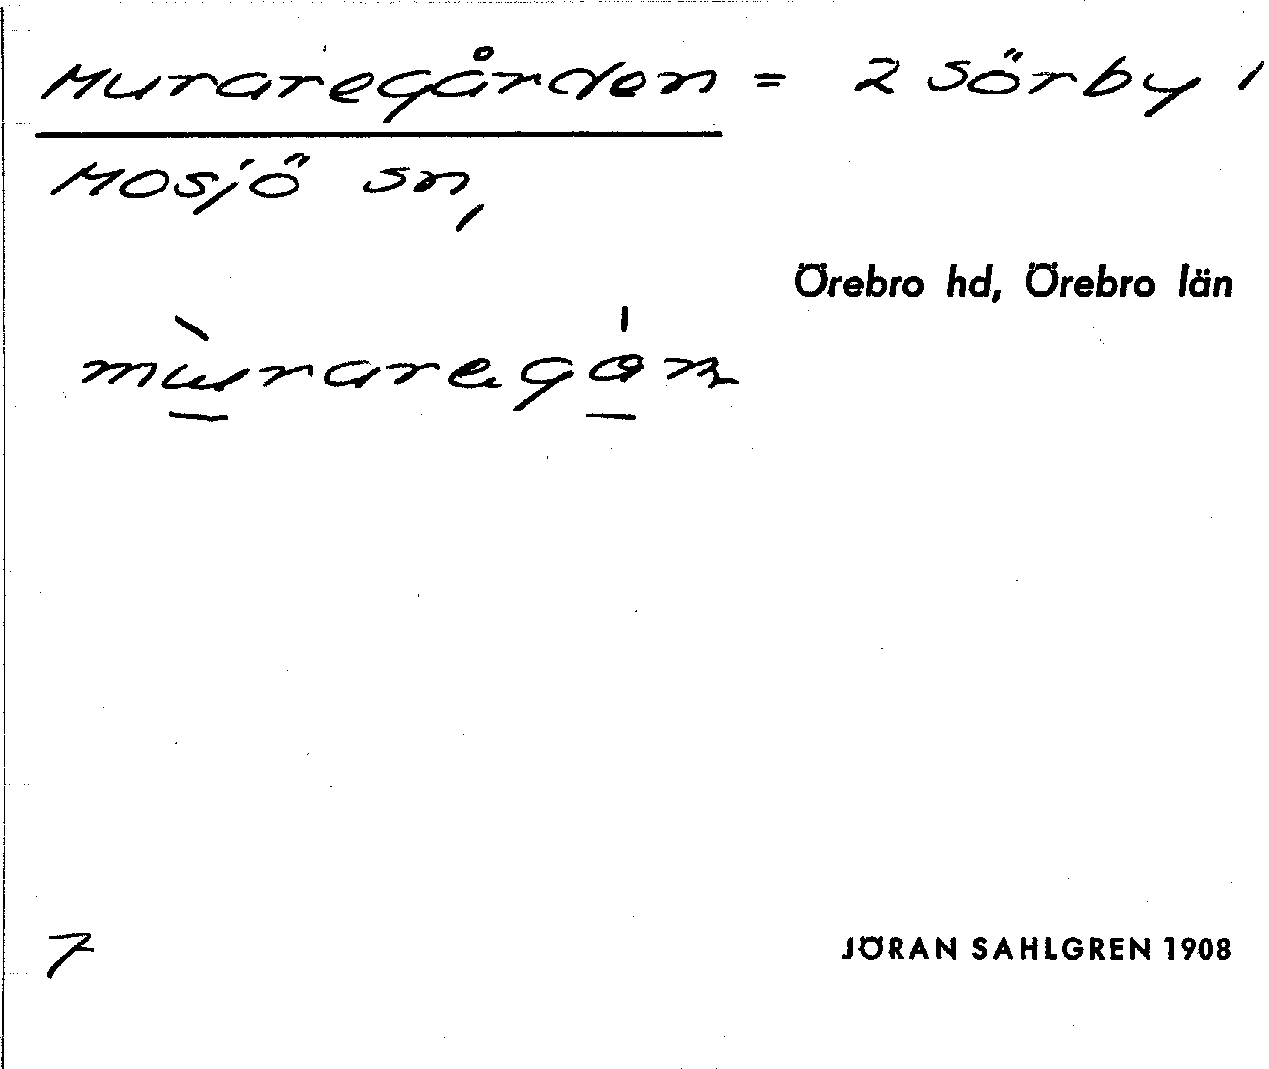 Muraregården = 2 Sörby 1
Mosjö sn,
Örebro hd, Örebro län
7
JÖRAN SAHLGREN 1908